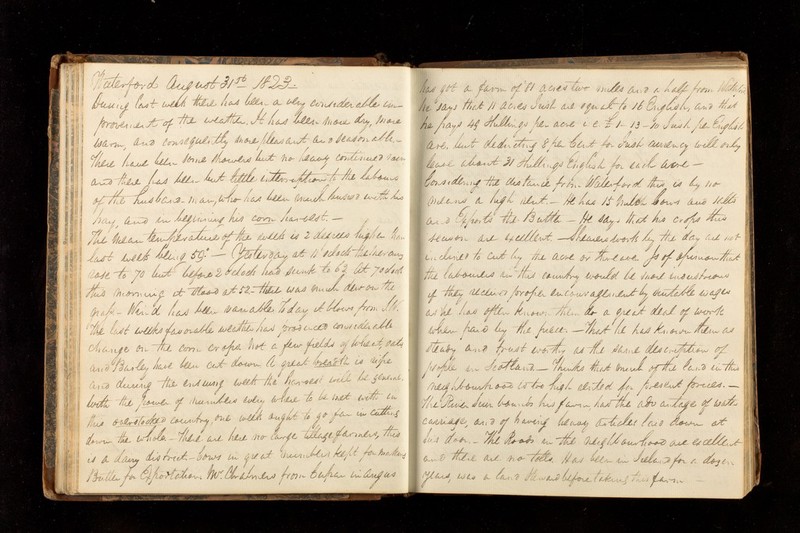 Waterford August 31st 1823.
During last week there has been a very considerable im-
provement of the weather. It has been more dry, more
warm, and consequently more pleasant and seasonable -
There have been some showers but no heavy continued rain
and there has been but little interruption to the labours
of the husband man, who has been much busied with his
hay, and in beginning his corn harvest. -
The mean temperature of the week is 2 degrees higher than
last week being 59° - Yesterday at 11 oClock the
rose to 70 but before 2 oClock had sunk to 63 At 7 oClock
this morning it stood at 52 - there was much dew on the
grass - Wind has been variable. Today it blows from
The last weeks favorable weather has produced considerable
change on the corn crops. Not a few fields of Wheat, oats
and Barley have been cut down A great breadth is ripe
and during the ensuing week the harvest will be general.
With the power of numbers every where to be met with in
this overstocked country one week ought to go far in cutting
down the whole - There are here no large tillage farmers, this
is a dairy district - Cows in great numbers kept for making
Butter for Exportation Mr. Chalmers from Cupar in Angus
has got a farm of 81 acres two miles and a half from
he says that 11 acres Irish are equal to 18 English, and that
he pays 48 Shillings per acre i.e. £1-13- Irish per English
acre, but deducting 8 per Cent for Irish currency will only
leave about 31 shillings English for each acre -
Considering the distance from Waterford this is by no
means a high rent. - He has 15 milch Cows and
and Exports the Butter - He says that his crops this
season are excellent. - Shearers work by the day are not
inclined to cut by the acre or threave Is of opinion that
the labourers in this country would be more industrious
if they received proper encouragement by suitable wages
as he has often known them do a great deal of work
when paid by the piece. - That he has known them as
steady and trust worthy as the same description of
people in Scotland - Thinks that much of the land in this
neighbourhood is too high rented for present prices. -
The River Suir bounds his farm, has the advantage of water
carriage, and of having heavy articles laid down at
his door. - The Roads in the neighbourhood are excellent
and there are no tolls. Has been in Ireland for a dozen
years, was a land Steward before taking this farm -